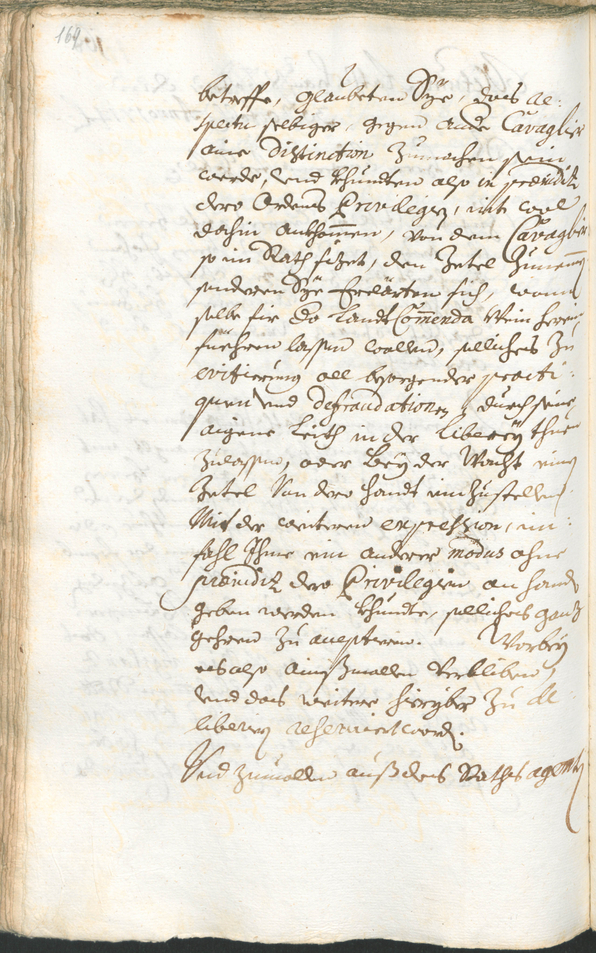 169.
betreffe, glaubeten Sÿe, das re¬
spectu selbiger, gegen ande Cavaglier
aine distinction zumachen sein
werde, vnd khundten also in præiuditz
dero Ordens Privilegien, nit wol
dahin ankhommen, von dem Cavaglier
so im Rath sizet, den Zetel zunemmen
sonderen Sÿe erclärten sich, wann
selbe für die Landt Commenda Wein herein
fuehren lassen wollen, solliches zu
evitierung all besorgender practi¬
quen vnd defraudationen, durch seine
aigene Leith in der liberey thuen
zulassen, oder beÿ der Wacht einen
Zetel von dero handt einzustellen
Mit der weiteren expression, im
fahl Ihme ein anderer modus ohne
præiuditz dero Privilegien an handt
geben werden khundte, solliches ganz
gehren zu acceptieren. Worbeÿ
es also dißmallen verbliben,
vnd das weitere hierüber zu de¬
liberieren reserviert word.
Vnd zumallen auß des Raths agent